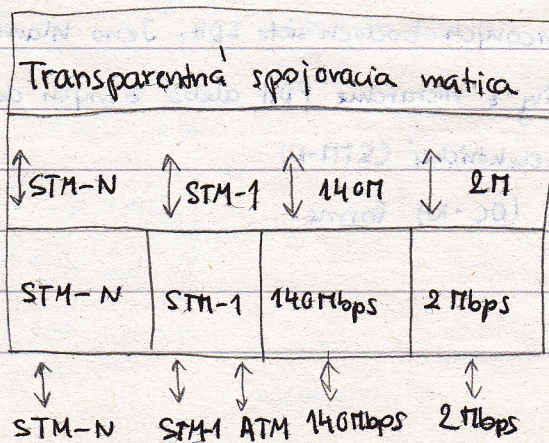 Transparentná spojovacia matica
STM-N STM-1 140M 2M
STM-N STM-1 140Mbps 2Mbps
STM-N STM-1 ATM 140Mbps 2Mbps